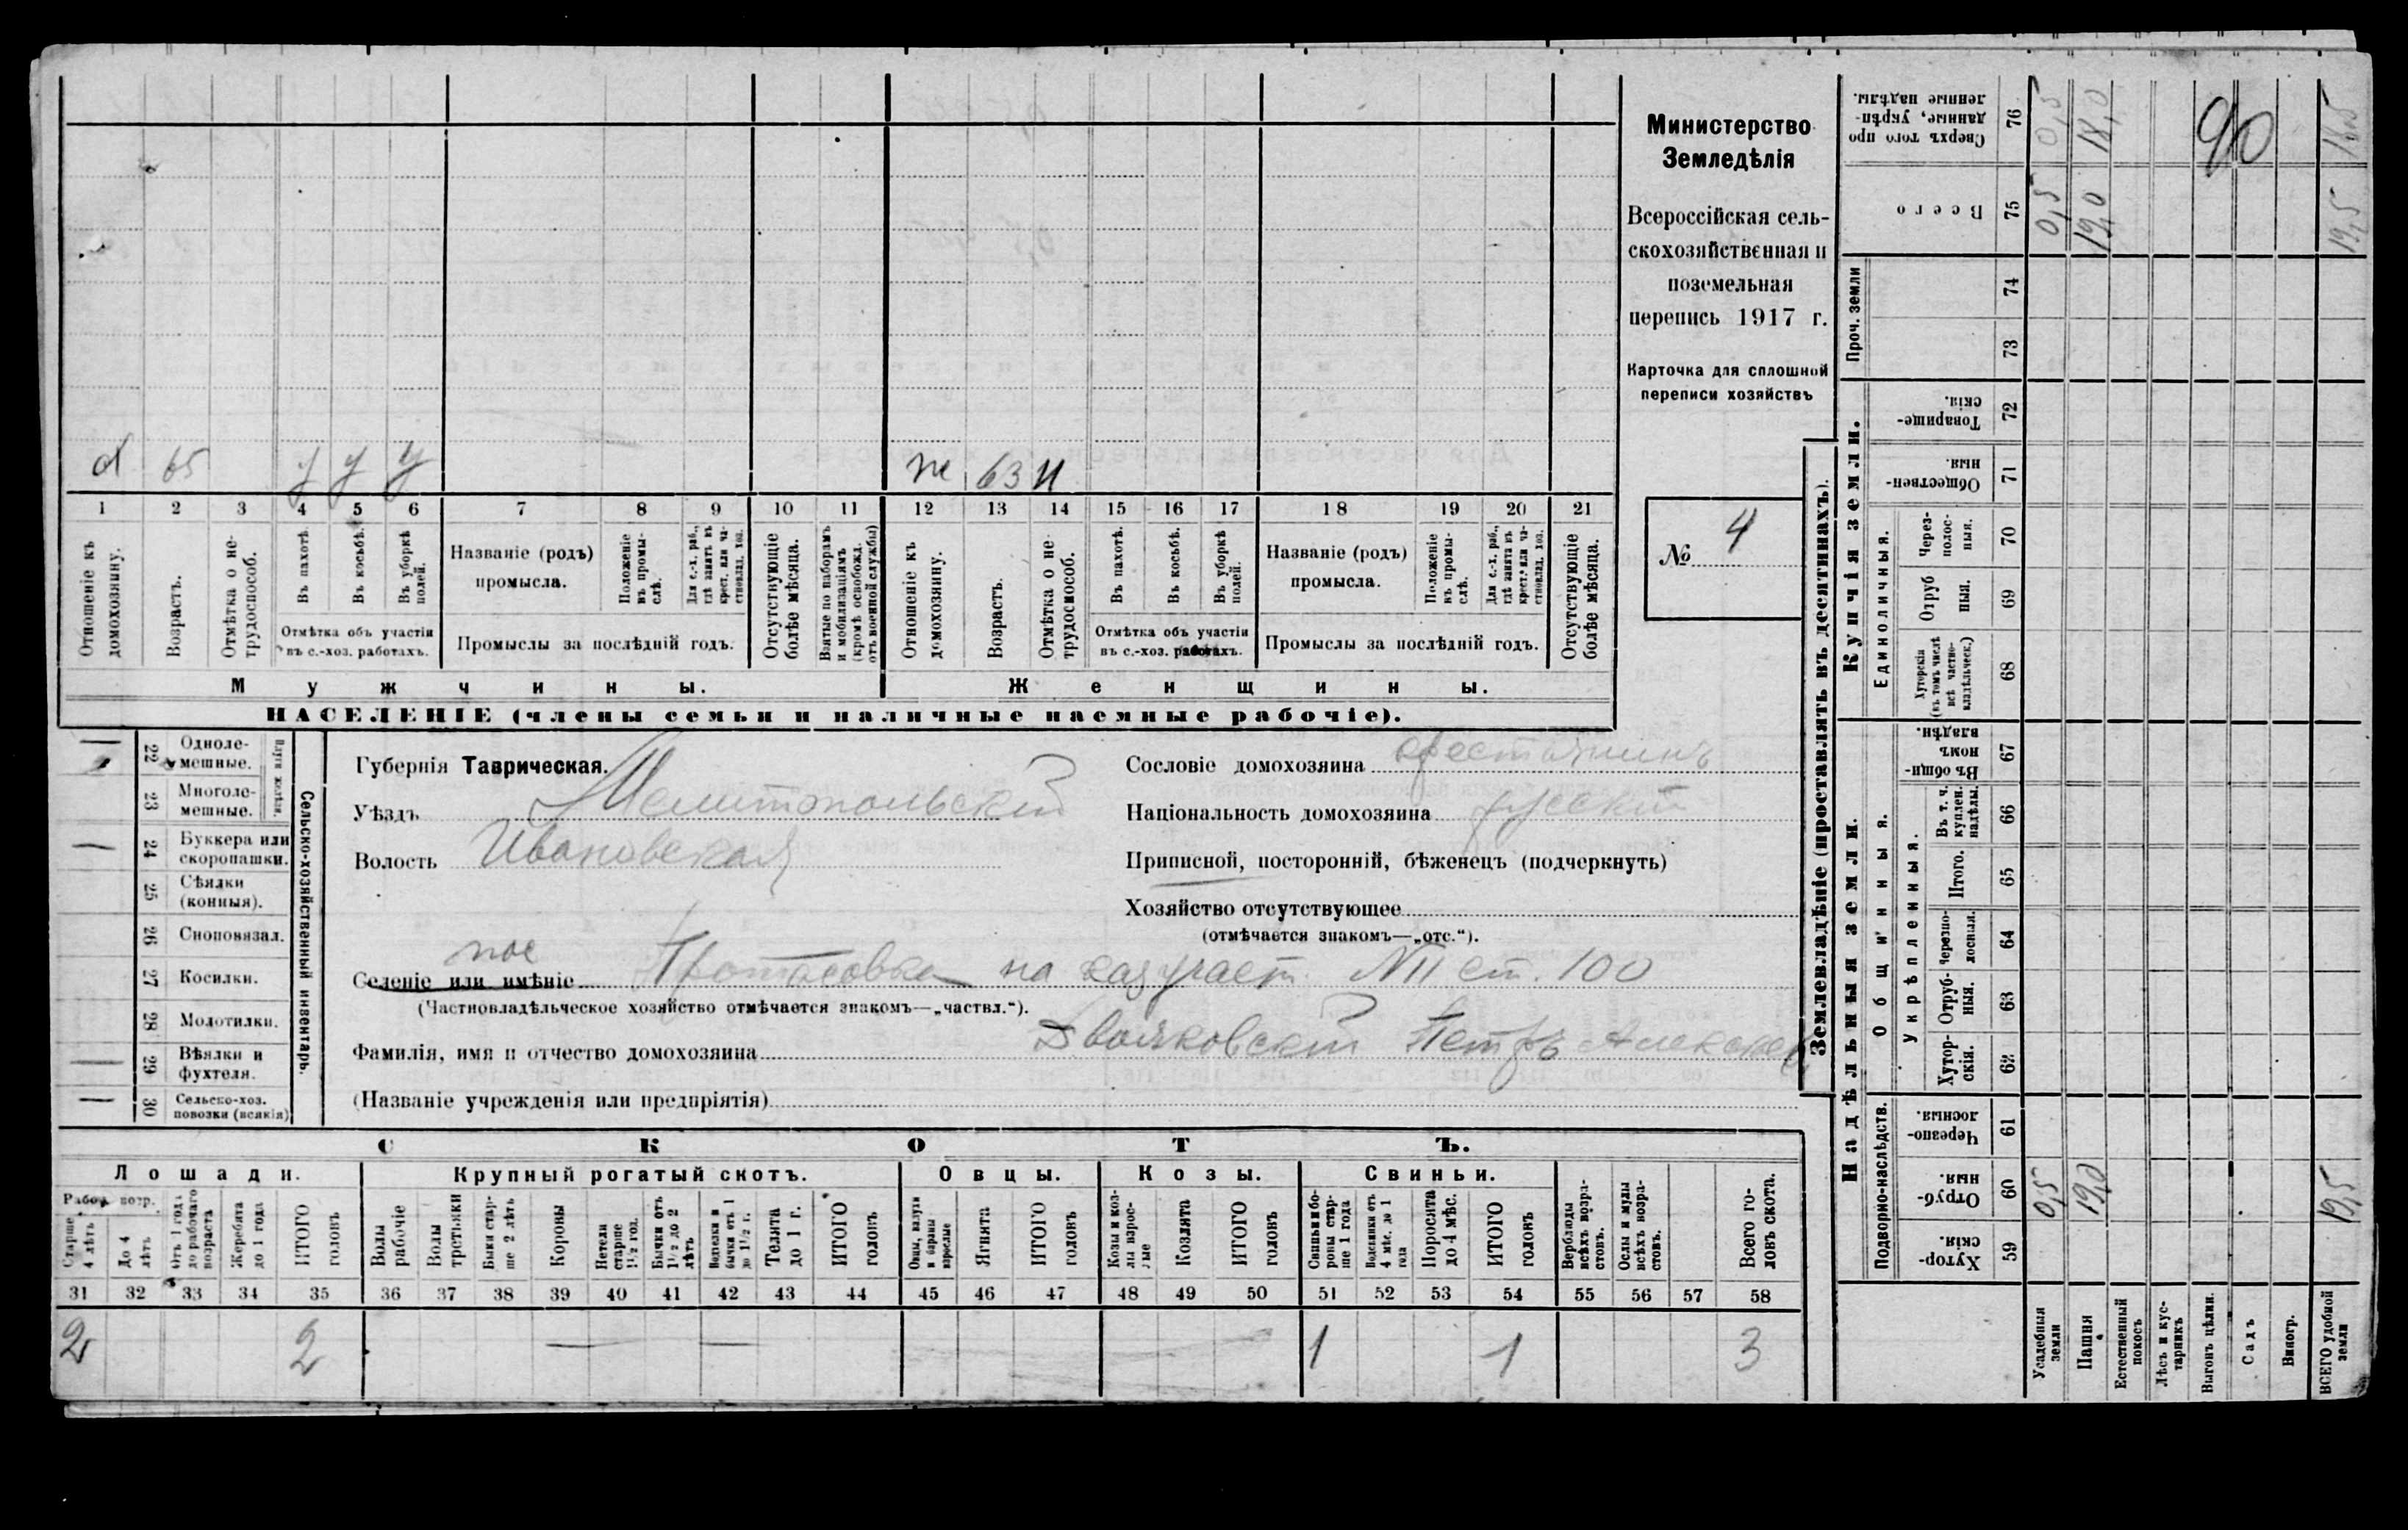 Министерство
Земледѣлія
Всероссійская сель-
скохозяйственная и
поземельная
перепись 1917 г.
Карточка для сплошной
переписи хозяйствъ
№ 4
х 65 у у у
ж 63 н
1 2 3 4 5 6 7 8 9 10 11 12 13 14 15 16 17 18 19 20 21
Отношеніе къ домохозяину.
Возрастъ.
Отмѣтка о не-трудоспособ.
Въ пахотѣ.
Въ косьбѣ.
Въ уборкѣ полей.
Отмѣтка объ участіи
въ с.-хоз. работахъ.
Названіе (родъ)
промысла.
Положеніе въ промы-слѣ.
Для с.-х. раб., гдѣ занятъ въ крест. или ча-стновлад. хоз.
Промыслы за послѣдній годъ.
Отсутствующіе болѣе мѣсяца.
Взятые по наборамъ и мобилизаціямъ (кромѣ освобожд. отъ военной службы)
Отношеніе къ домохозяину.
Возрастъ.
Отмѣтка о не-трудоспособ.
Въ пахотѣ.
Въ косьбѣ.
Въ уборкѣ полей.
Отмѣтка объ участіи
въ с.-хоз. работахъ.
Названіе (родъ)
промысла.
Положеніе въ промы-слѣ.
Для с.-х. раб., гдѣ занята въ крест. или ча-стновлад. хоз.
Промыслы за послѣдній годъ.
Отсутствующіе болѣе мѣсяца.
Мужчины.
Женщины.
НАСЕЛЕНІЕ (члены семьи и наличные наемные рабочіе).
22 Одноле-мешные.
23 Многоле-мешные.
24 Буккера или скоропашки.
25 Сѣялки (конныя).
26 Сноповязал.
27 Косилки.
28 Молотилки.
29 Вѣялки и фухтеля.
30 Сельско-хоз. повозки (всякія)
Сельско-хозяйственный инвентарь.
Губернія Таврическая.
Уѣздъ Мелитопольскій
Волость Ивановская
пос
Селеніе или имѣніе Протасовка на каз участ. № II ст. 100
(Частновладѣльческое хозяйство отмѣчается знакомъ—„частвл.“).
Фамилія, имя и отчество домохозяина Двояковскій Петръ Алексѣев
(Названіе учрежденія или предпріятія)
Сословіе домохозяина крестьянинъ
Національность домохозяина русскій
Приписной, посторонній, бѣженецъ (подчеркнуть)
Хозяйство отсутствующее
(отмѣчается знакомъ—„отс.“).
СКОТЪ.
Лошади.
Крупный рогатый скотъ.
Овцы.
Козы.
Свиньи.
Рабоч. возр.
Старше 4 лѣтъ
До 4 лѣтъ
Отъ 1 года до рабочаго возраста
Жеребята до 1 года
ИТОГО головъ
Волы рабочіе
Волы третьяки
Быки стар-ше 2 лѣтъ
Коровы
Нетели старше 1½ год.
Бычки отъ 1½ до 2 лѣтъ
Телята до 1 г.
ИТОГО головъ
Овцы, валухи и бараны взрослые
Ягнята
ИТОГО головъ
Козы и коз-лы взрос-лые
Козлята
ИТОГО головъ
Свиньи и бо-ровы стар-ше 1 года
Поросята до 4 мѣс.
ИТОГО головъ
Верблюды всѣхъ возра-стовъ.
Ослы и мулы всѣхъ возра-стовъ.
Всего го-ловъ скота.
31 32 33 34 35 36 37 38 39 40 41 42 43 44 45 46 47 48 49 50 51 52 53 54 55 56 57 58
2 2 — — 1 1 3
Землевладѣніе (проставлять въ десятинахъ).
Надѣльныя земли.
Купчія земли.
Проч. земли
Подворно-наслѣдств.
Общинныя.
Укрѣпленныя.
Единоличныя.
Сверхъ того про данные, укрѣп-ленные надѣлы. 76 0,5 18,0 18,5
90
Всего 75 0,5 19,0 19,5
74
73
Товарище-скія. 72
Обществен-ныя. 71
Через-полос-ныя. 70
Отруб ныя. 69
Хуторскія (въ томъ числѣ всѣ частно-владѣльческ.) 68
Въ общин-номъ владѣн. 67
Въ т. ч. куплен. надѣлы. 66
Итого. 65
Черезпо-лосныя. 64
Отруб-ныя. 63
Хутор-скія. 62
Черезпо-лосныя. 61
Отруб-ныя. 60 0,5 19,0 19,5
Хутор-скія. 59
Усадебныя земли
Пашня
Естественный покосъ
Лѣсъ и кус-тарникъ
Выгонъ цѣлин.
Садъ
Виногр.
ВСЕГО удобной земли